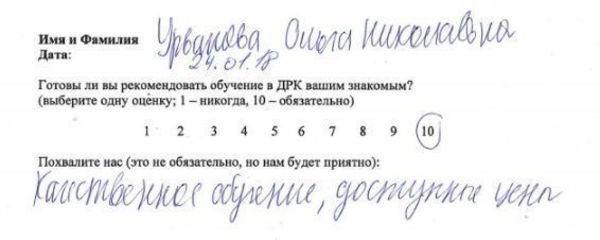 Имя и Фамилия Урванова Ольга Николаевна
Дата: 24.01.18
Готовы ли вы рекомендовать обучение в ДРК вашим знакомым?
(выберите одну оценку; 1 – никогда, 10 – обязательно)
1 2 3 4 5 6 7 8 9 10
Похвалите нас (это не обязательно, но нам будет приятно):
Качественное обучение, доступные цены